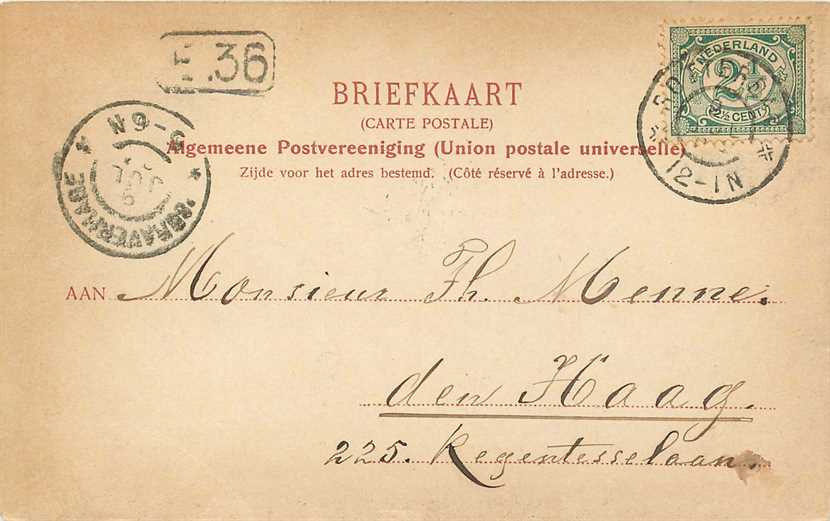 E.36
NEDERLAND
2½
(2½ CENT)
12-1N
5-6N
'SGRAVENHAGE
BRIEFKAART
(CARTE POSTALE)
Algemeene Postvereeniging (Union postale universelle)
Zijde voor het adres bestemd. (Côté réservé à l'adresse.)
AAN Monsieur Th. Menne.
den Haag.
225. Regentesselaan.